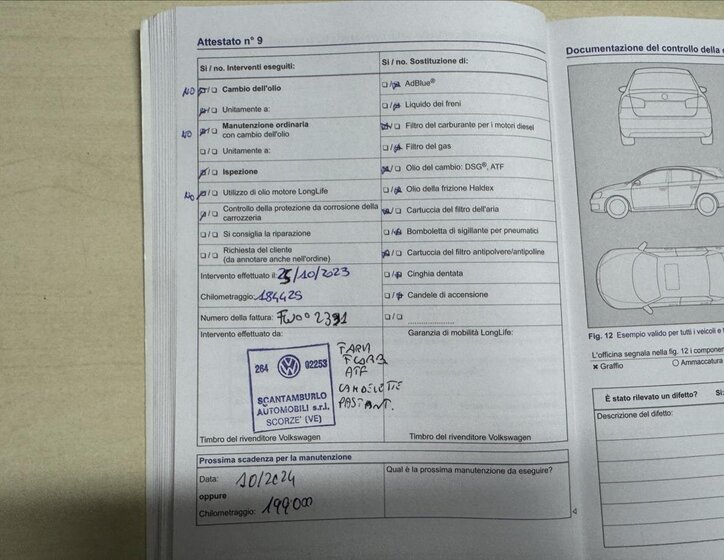 Attestato n° 9
Si / no. Interventi eseguiti:
NO Cambio dell'olio
Unitamente a:
NO Manutenzione ordinaria
con cambio dell'olio
Unitamente a:
Ispezione
No Utilizzo di olio motore LongLife
Controllo della protezione da corrosione della
carrozzeria
Si consiglia la riparazione
Richiesta del cliente
(da annotare anche nell'ordine)
Intervento effettuato il: 25/10/2023
Chilometraggio: 184425
Numero della fattura:
Intervento effettuato da:
264 02253
SCANTAMBURLO
AUTOMOBILI s.r.l.
SCORZE' (VE)
ATF
Timbro del rivenditore Volkswagen
Si / no. Sostituzione di:
AdBlue®
Liquido dei freni
Filtro del carburante per i motori diesel
Filtro del gas
Olio del cambio: DSG®, ATF
Olio della frizione Haldex
Cartuccia del filtro dell'aria
Bomboletta di sigillante per pneumatici
Cartuccia del filtro antipolvere/antipolline
Cinghia dentata
Candele di accensione
Garanzia di mobilità LongLife:
Timbro del rivenditore Volkswagen
Prossima scadenza per la manutenzione
Data: 10/2024
oppure
Chilometraggio: 199000
Qual è la prossima manutenzione da eseguire?
Documentazione del controllo della
Fig. 12 Esempio valido per tutti i veicoli e
L'officina segnala nella fig. 12 i componen
× Graffio
Ammaccatura
È stato rilevato un difetto? Si:
Descrizione del difetto: